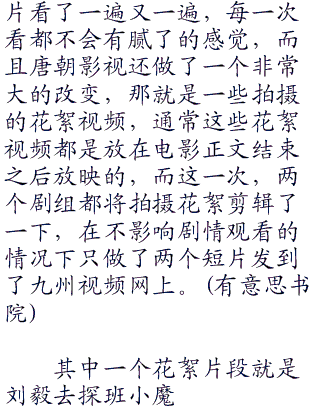 片看了一遍又一遍，每一次
看都不会有腻了的感觉，而
且唐朝影视还做了一个非常
大的改变，那就是一些拍摄
的花絮视频，通常这些花絮
视频都是放在电影正文结束
之后放映的，而这一次，两
个剧组都将拍摄花絮剪辑了
一下，在不影响剧情观看的
情况下只做了两个短片发到
了九州视频网上。（有意思书
院）
其中一个花絮片段就是
刘毅去探班小魔